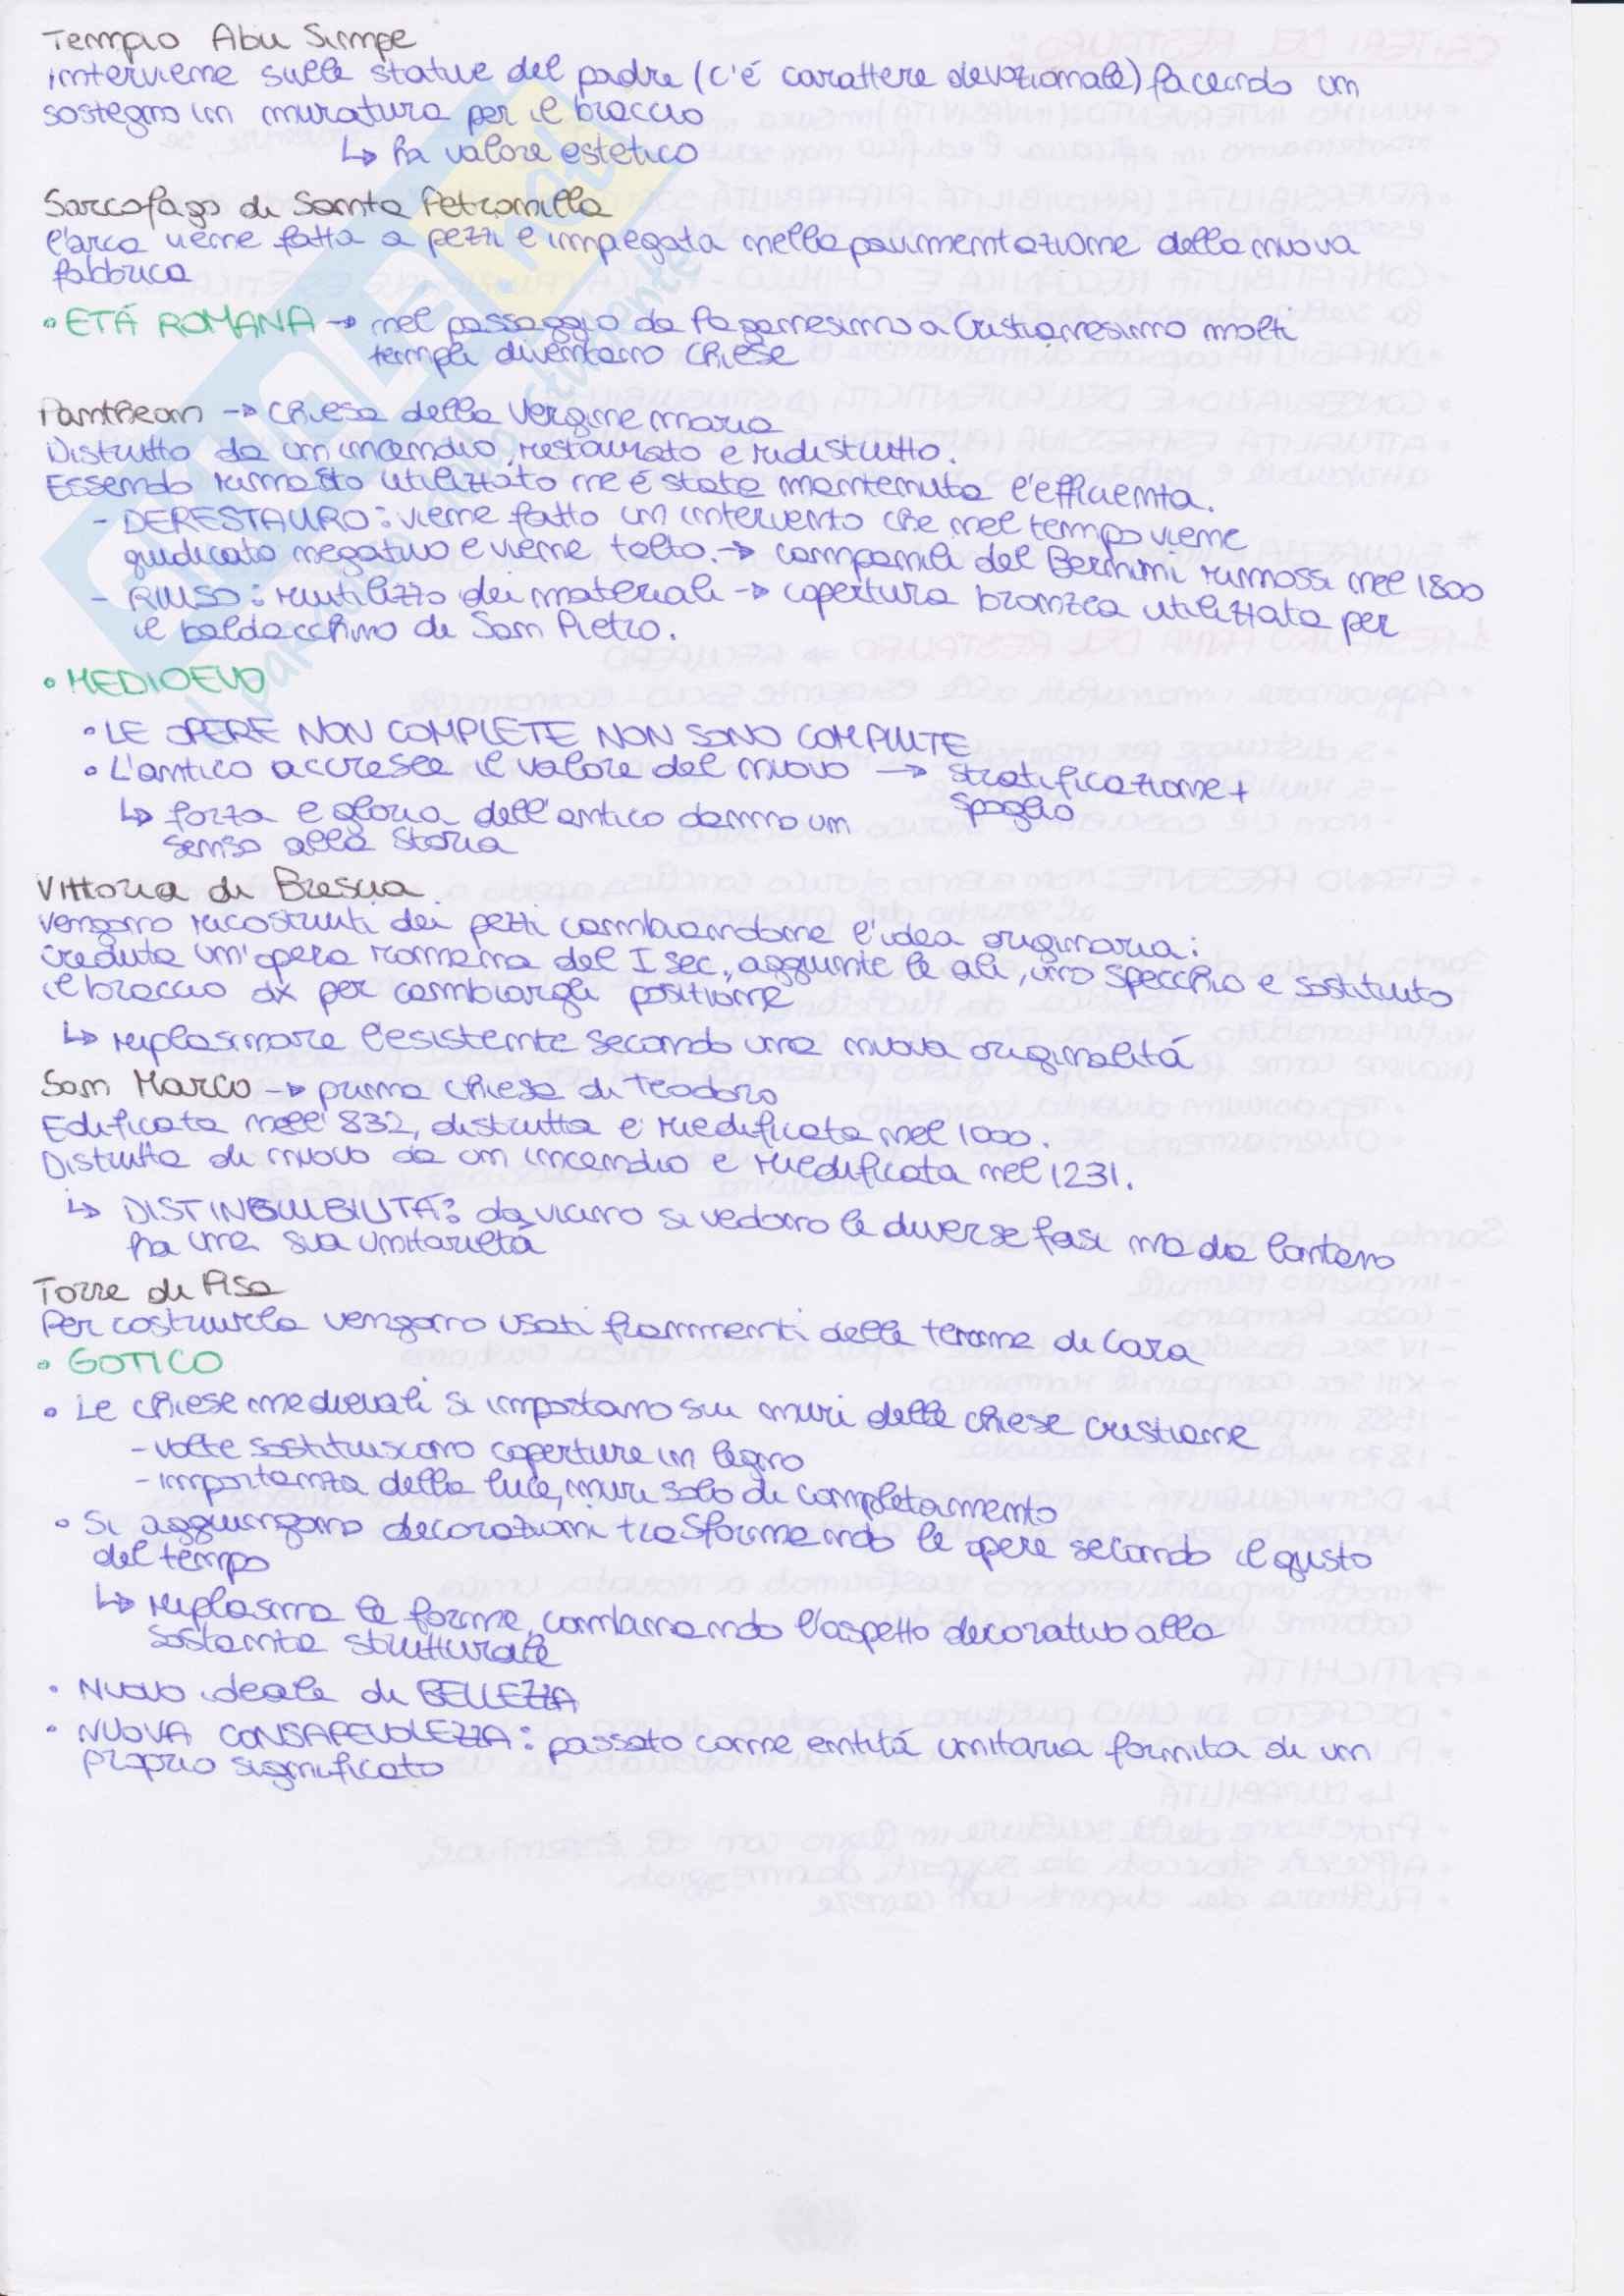 Tempio Abu Simpe
interviene sulle statue del padre (c'é carattere devozionale) facendo un
sostegno in muratura per il braccio
↳ ha valore estetico
Sarcofago di Santa Petronilla
l'arca viene fatta a pezzi e impegata nella pavimentazione della nuova
fabbrica
• ETÁ ROMANA → nel passaggio da Paganesimo a Cristianesimo molti
templi diventano chiese
Pantheon → chiesa della Vergine Maria
Distrutto da un incendio, restaurato e ridistrutto.
Essendo rimasto utilizzato ne é stata mantenuta l'efficienza.
- DERESTAURO: viene fatto un intervento che nel tempo viene
giudicato negativo e viene tolto. → campanili del Bernini rimossi nel 1800
- RIUSO: riutilizzo dei materiali → copertura bronzea utilizzata per
il baldacchino di San Pietro.
• MEDIOEVO
• LE OPERE NON COMPLETE NON SONO COMPIUTE
• L'antico accresce il valore del nuovo → stratificazione +
spoglio
↳ forza e gloria dell'antico danno un
senso alla storia
Vittoria di Brescia
vengono ricostruiti dei pezzi cambiandone l'idea originaria:
creduta un'opera romana del I sec., aggiunte le ali, uno specchio e sostituito
il braccio dx per cambiargli posizione
↳ riplasmare l'esistente secondo una nuova originalitá
San Marco → prima chiesa di Teodoro
Edificata nell' 832, distrutta e riedificata nel 1000.
Distrutta di nuovo da un incendio e riedificata nel 1231.
↳ DISTINGUIBILITÁ: da vicino si vedono le diverse fasi ma da lontano
ha una sua unitarietá
Torre di Pisa
Per costruirla vengono usati frammenti delle terme di Cara
• GOTICO
• Le chiese medievali si impostano sui muri delle chiese cristiane
- volte sostituiscono coperture in legno
- importanza della luce, muri solo di completamento
• Si aggiungono decorazioni trasformando le opere secondo il gusto
del tempo
↳ riplasma le forme, combinando l'aspetto decorativo alla
sostanza strutturale
• NUOVO ideale di BELLEZZA
• NUOVA CONSAPEVOLEZZA: passato come entitá unitaria fornita di un
proprio significato